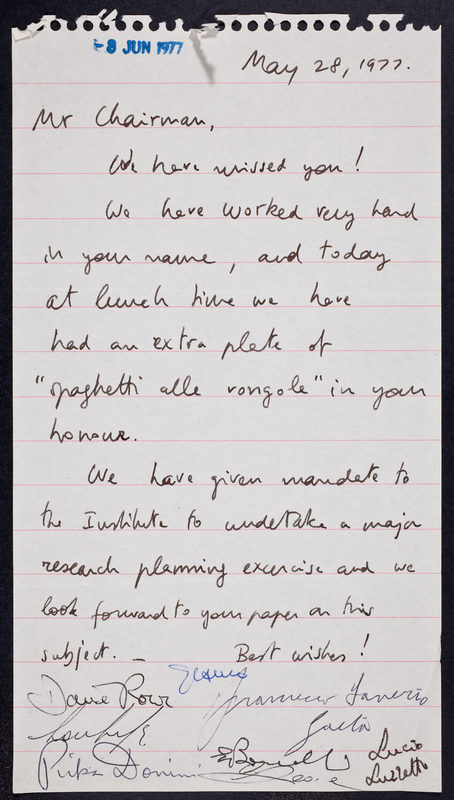 -8 JUN 1977
May 28, 1977.
Mr Chairman,
We have missed you!
We have worked very hard
in your name, and today
at lunch time we have
had an extra plate of
"spaghetti alle vongole" in your
honour.
We have given mandate to
the Institute to undertake a major
research planning exercise and we
look forward to your paper on this
subject. –
Best wishes!
Gaeta
Pirka Donini
Lucio
Luzzatto